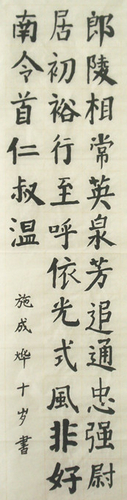 郎陵相常英泉芳追通忠强尉
居初裕行至呼依光式風非好
南令首仁叔温
施成烨十岁書